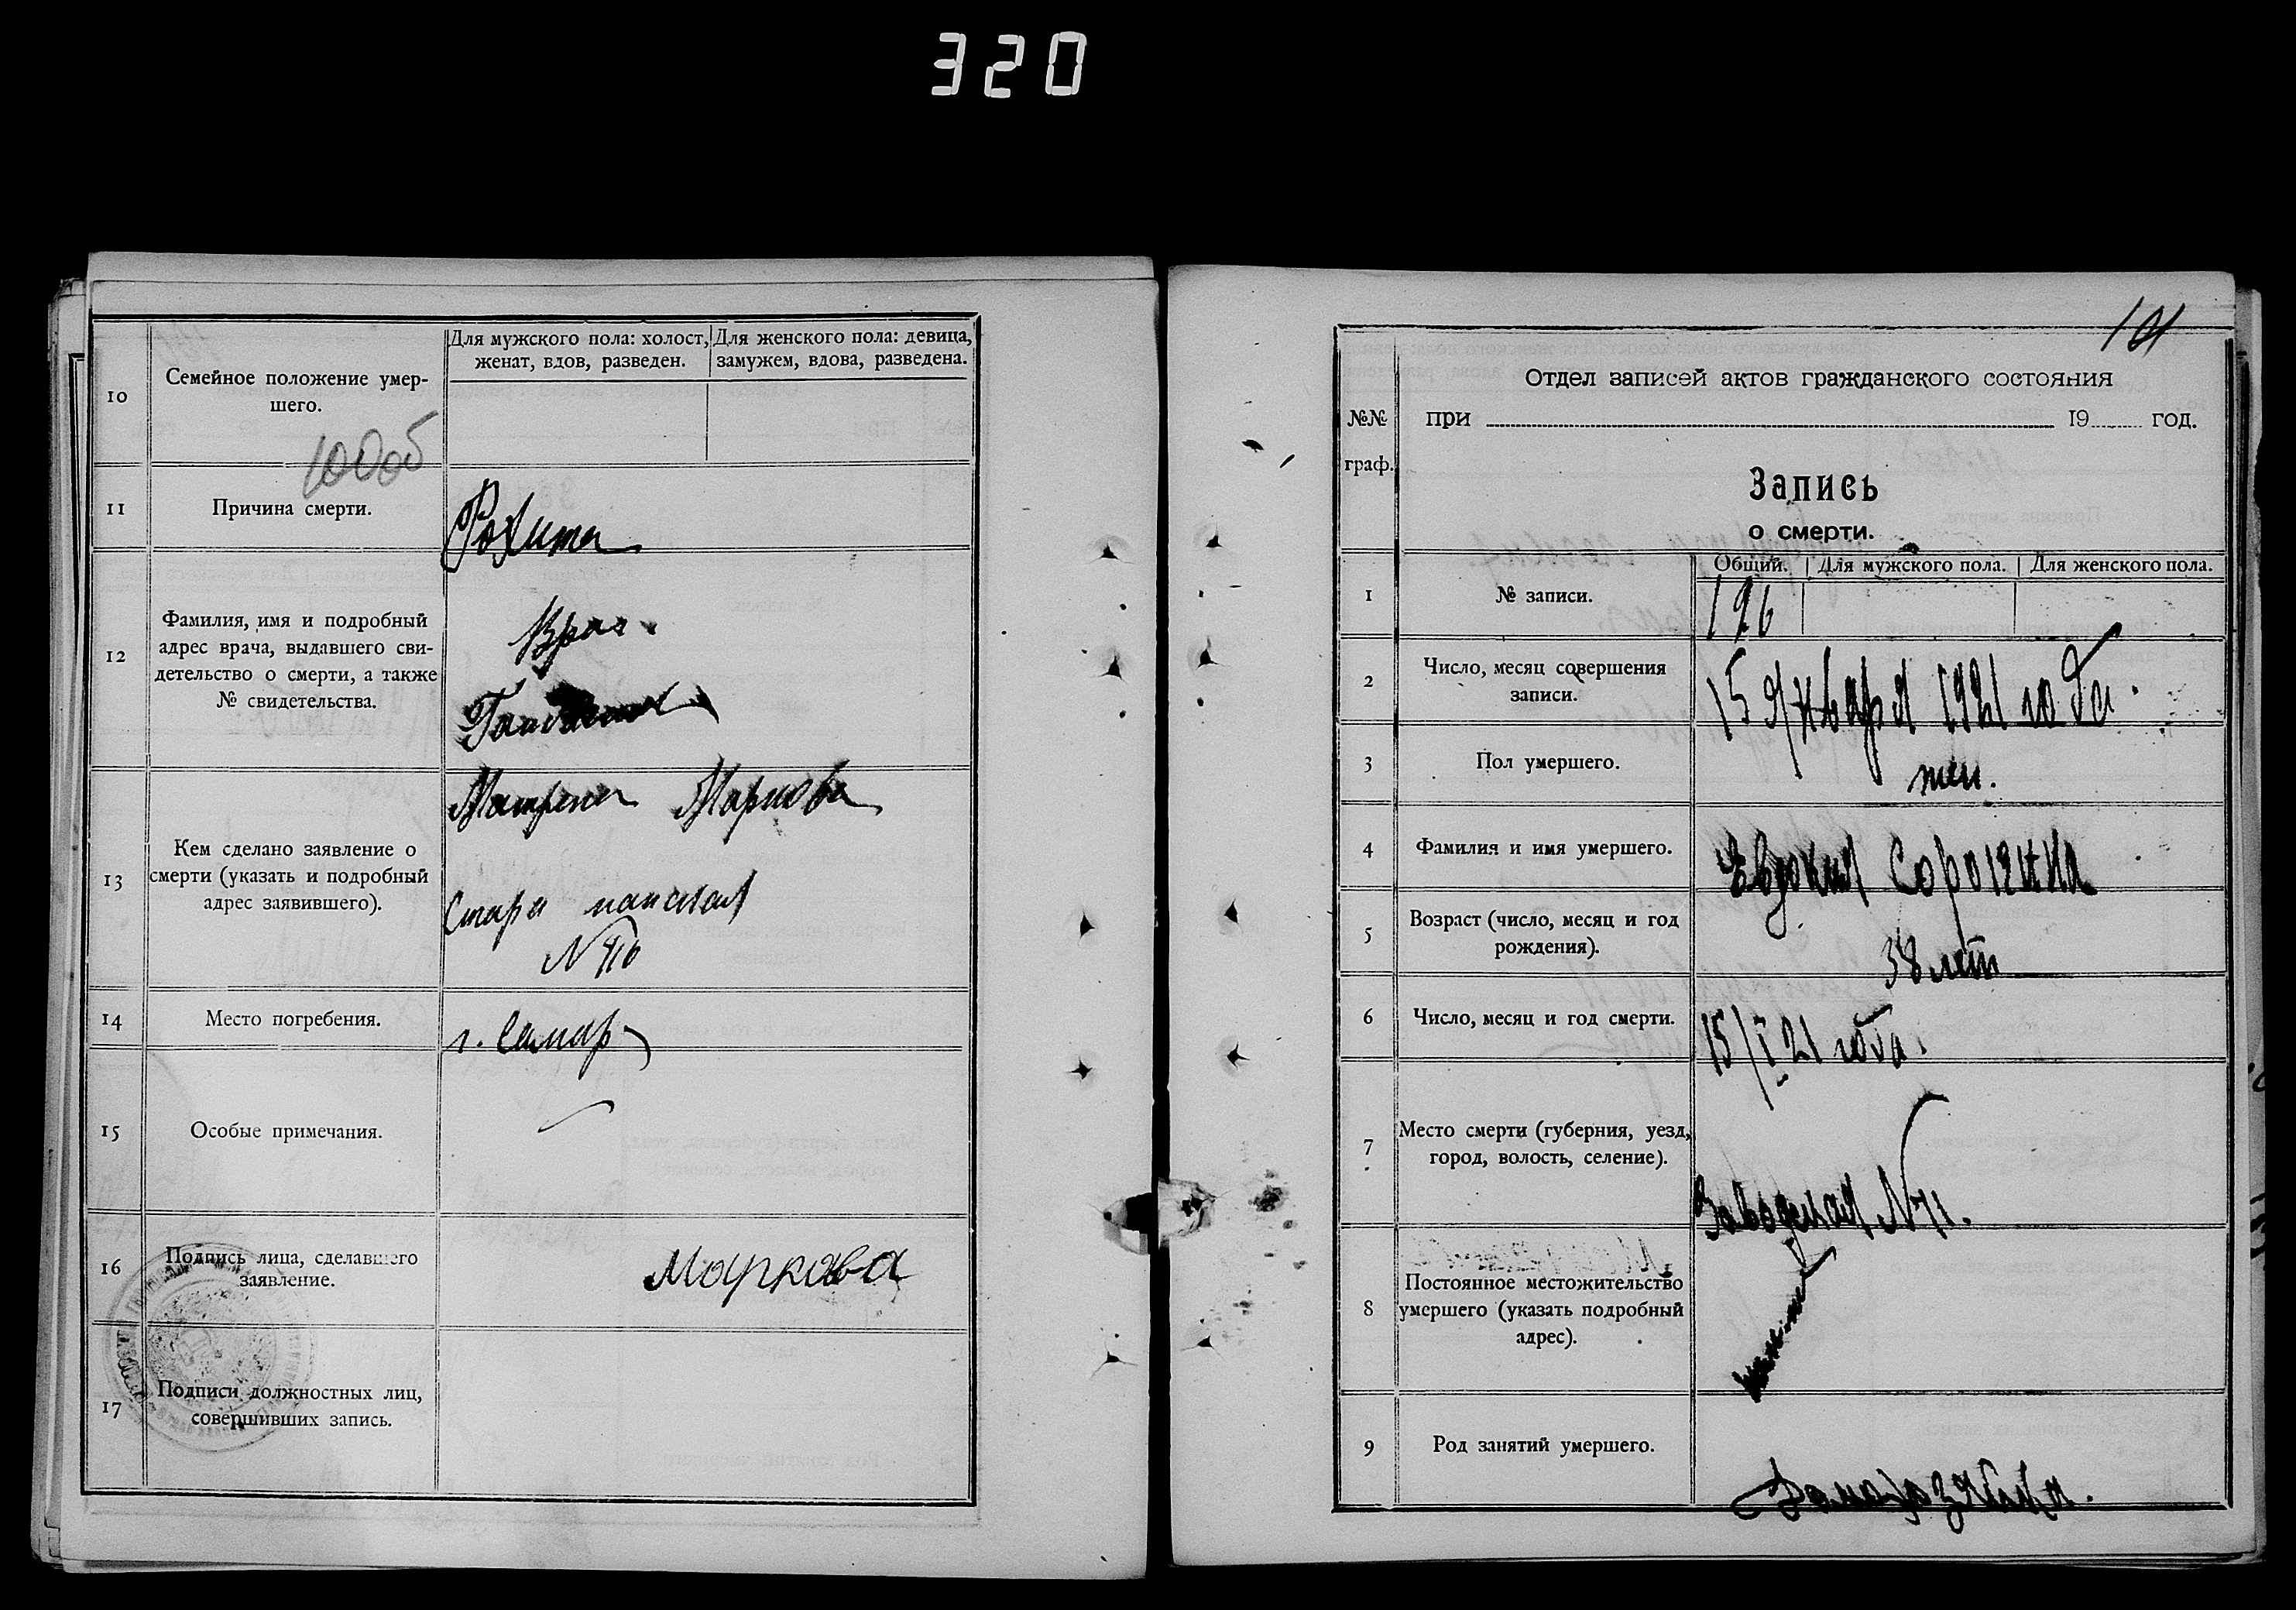 320
10
Семейное положение умер-
шего.
Для мужского пола: холост,
женат, вдов, разведен.
Для женского пола: девица,
замужем, вдова, разведена.
100об
11
Причина смерти.
12
Фамилия, имя и подробный
адрес врача, выдавшего сви-
детельство о смерти, а также
№ свидетельства.
Врач
13
Кем сделано заявление о
смерти (указать и подробный
адрес заявившего).
Матрена Маркова
14
Место погребения.
г. Самар
15
Особые примечания.
16
Подпись лица, сделавшего
заявление.
Маркова
17
Подписи должностных лиц,
совершивших запись.
101
№№
граф.
Отдел записей актов гражданского состояния
при 19 год.
Запись
о смерти.
Общий. Для мужского пола. Для женского пола.
1
№ записи.
196
2
Число, месяц совершения
записи.
15 января 1921 года
3
Пол умершего.
жен.
4
Фамилия и имя умершего.
Евдокия Сорокина
5
Возраст (число, месяц и год
рождения).
38 лет
6
Число, месяц и год смерти.
15/I 21 года.
7
Место смерти (губерния, уезд,
город, волость, селение).
Заводская N 71.
8
Постоянное местожительство
умершего (указать подробный
адрес).
9
Род занятий умершего.